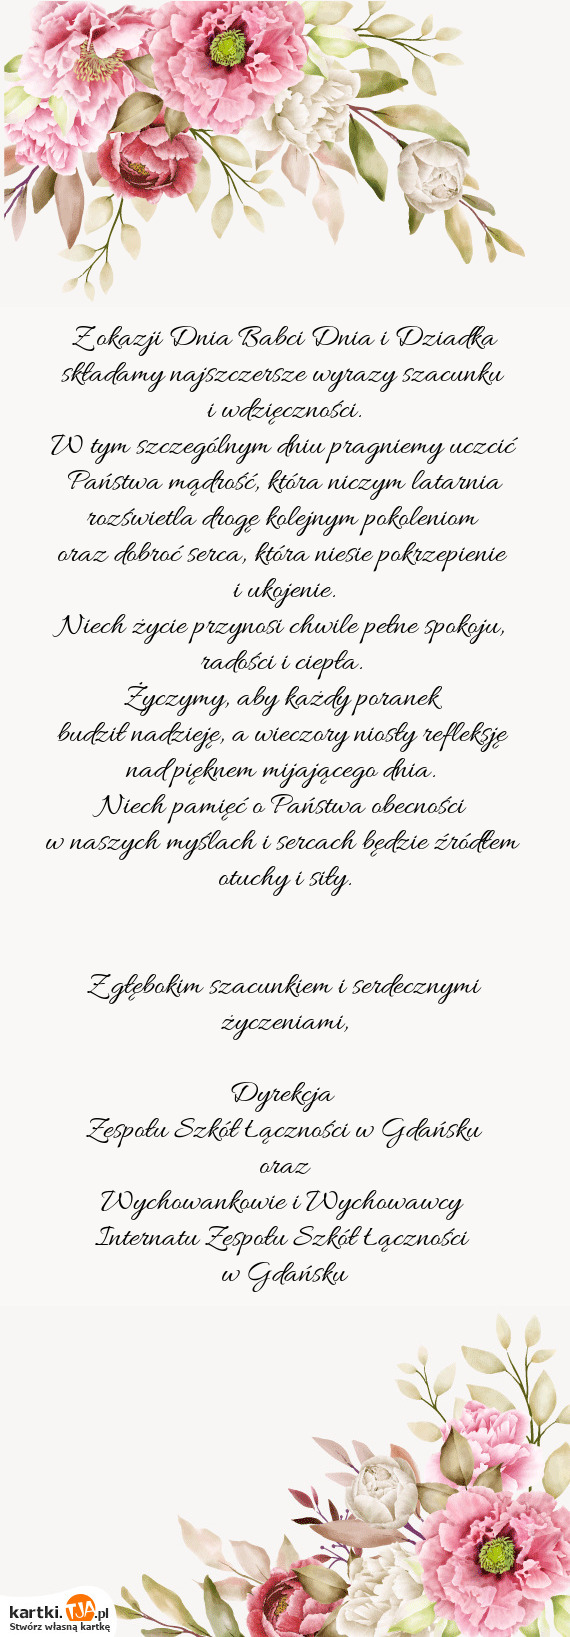 Z okazji Dnia Babci Dnia i Dziadka
składamy najszczersze wyrazy szacunku
i wdzięczności.
W tym szczególnym dniu pragniemy uczcić
Państwa mądrość, która niczym latarnia
rozświetla drogę kolejnym pokoleniom
oraz dobroć serca, która niesie pokrzepienie
i ukojenie.
Niech życie przynosi chwile pełne spokoju,
radości i ciepła.
Życzymy, aby każdy poranek
budził nadzieję, a wieczory niosły refleksję
nad pięknem mijającego dnia.
Niech pamięć o Państwa obecności
w naszych myślach i sercach będzie źródłem
otuchy i siły.
Z głębokim szacunkiem i serdecznymi
życzeniami,
Dyrekcja
Zespołu Szkół Łączności w Gdańsku
oraz
Wychowankowie i Wychowawcy
Internatu Zespołu Szkół Łączności
w Gdańsku
kartki.TJA.pl
Stwórz własną kartkę